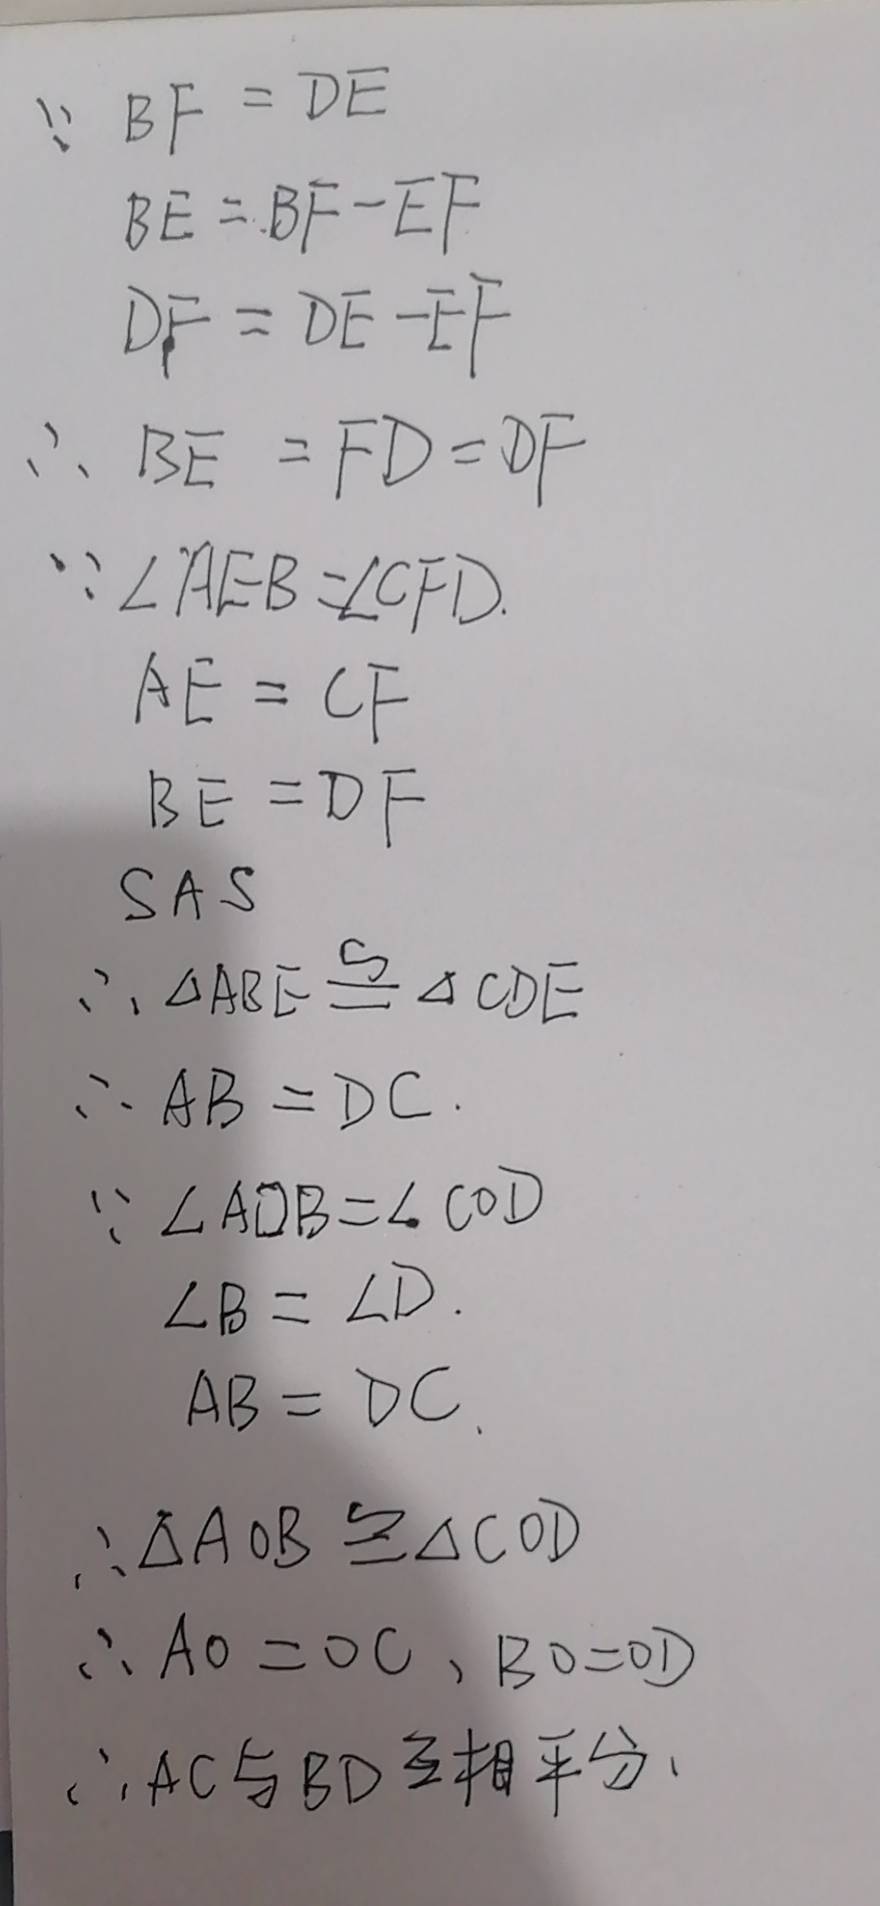 ∵ BF = DE
BE = BF - EF
DF = DE - EF
∴ BE = FD = DF
∵ ∠AEB = ∠CFD.
AE = CF
BE = DF
SAS
∴ △ABE ≌ △CDE
∴ AB = DC.
∵ ∠AOB = ∠COD
∠B = ∠D.
AB = DC.
∴ △AOB ≌ △COD
∴ AO = OC、BO = OD
∴ AC与BD互相平分、